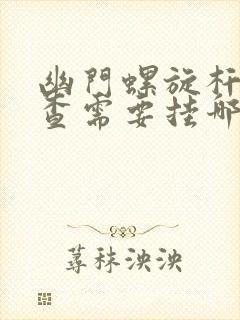 幽門螺旋杆
查需要挂哪
蕁秣泱泱